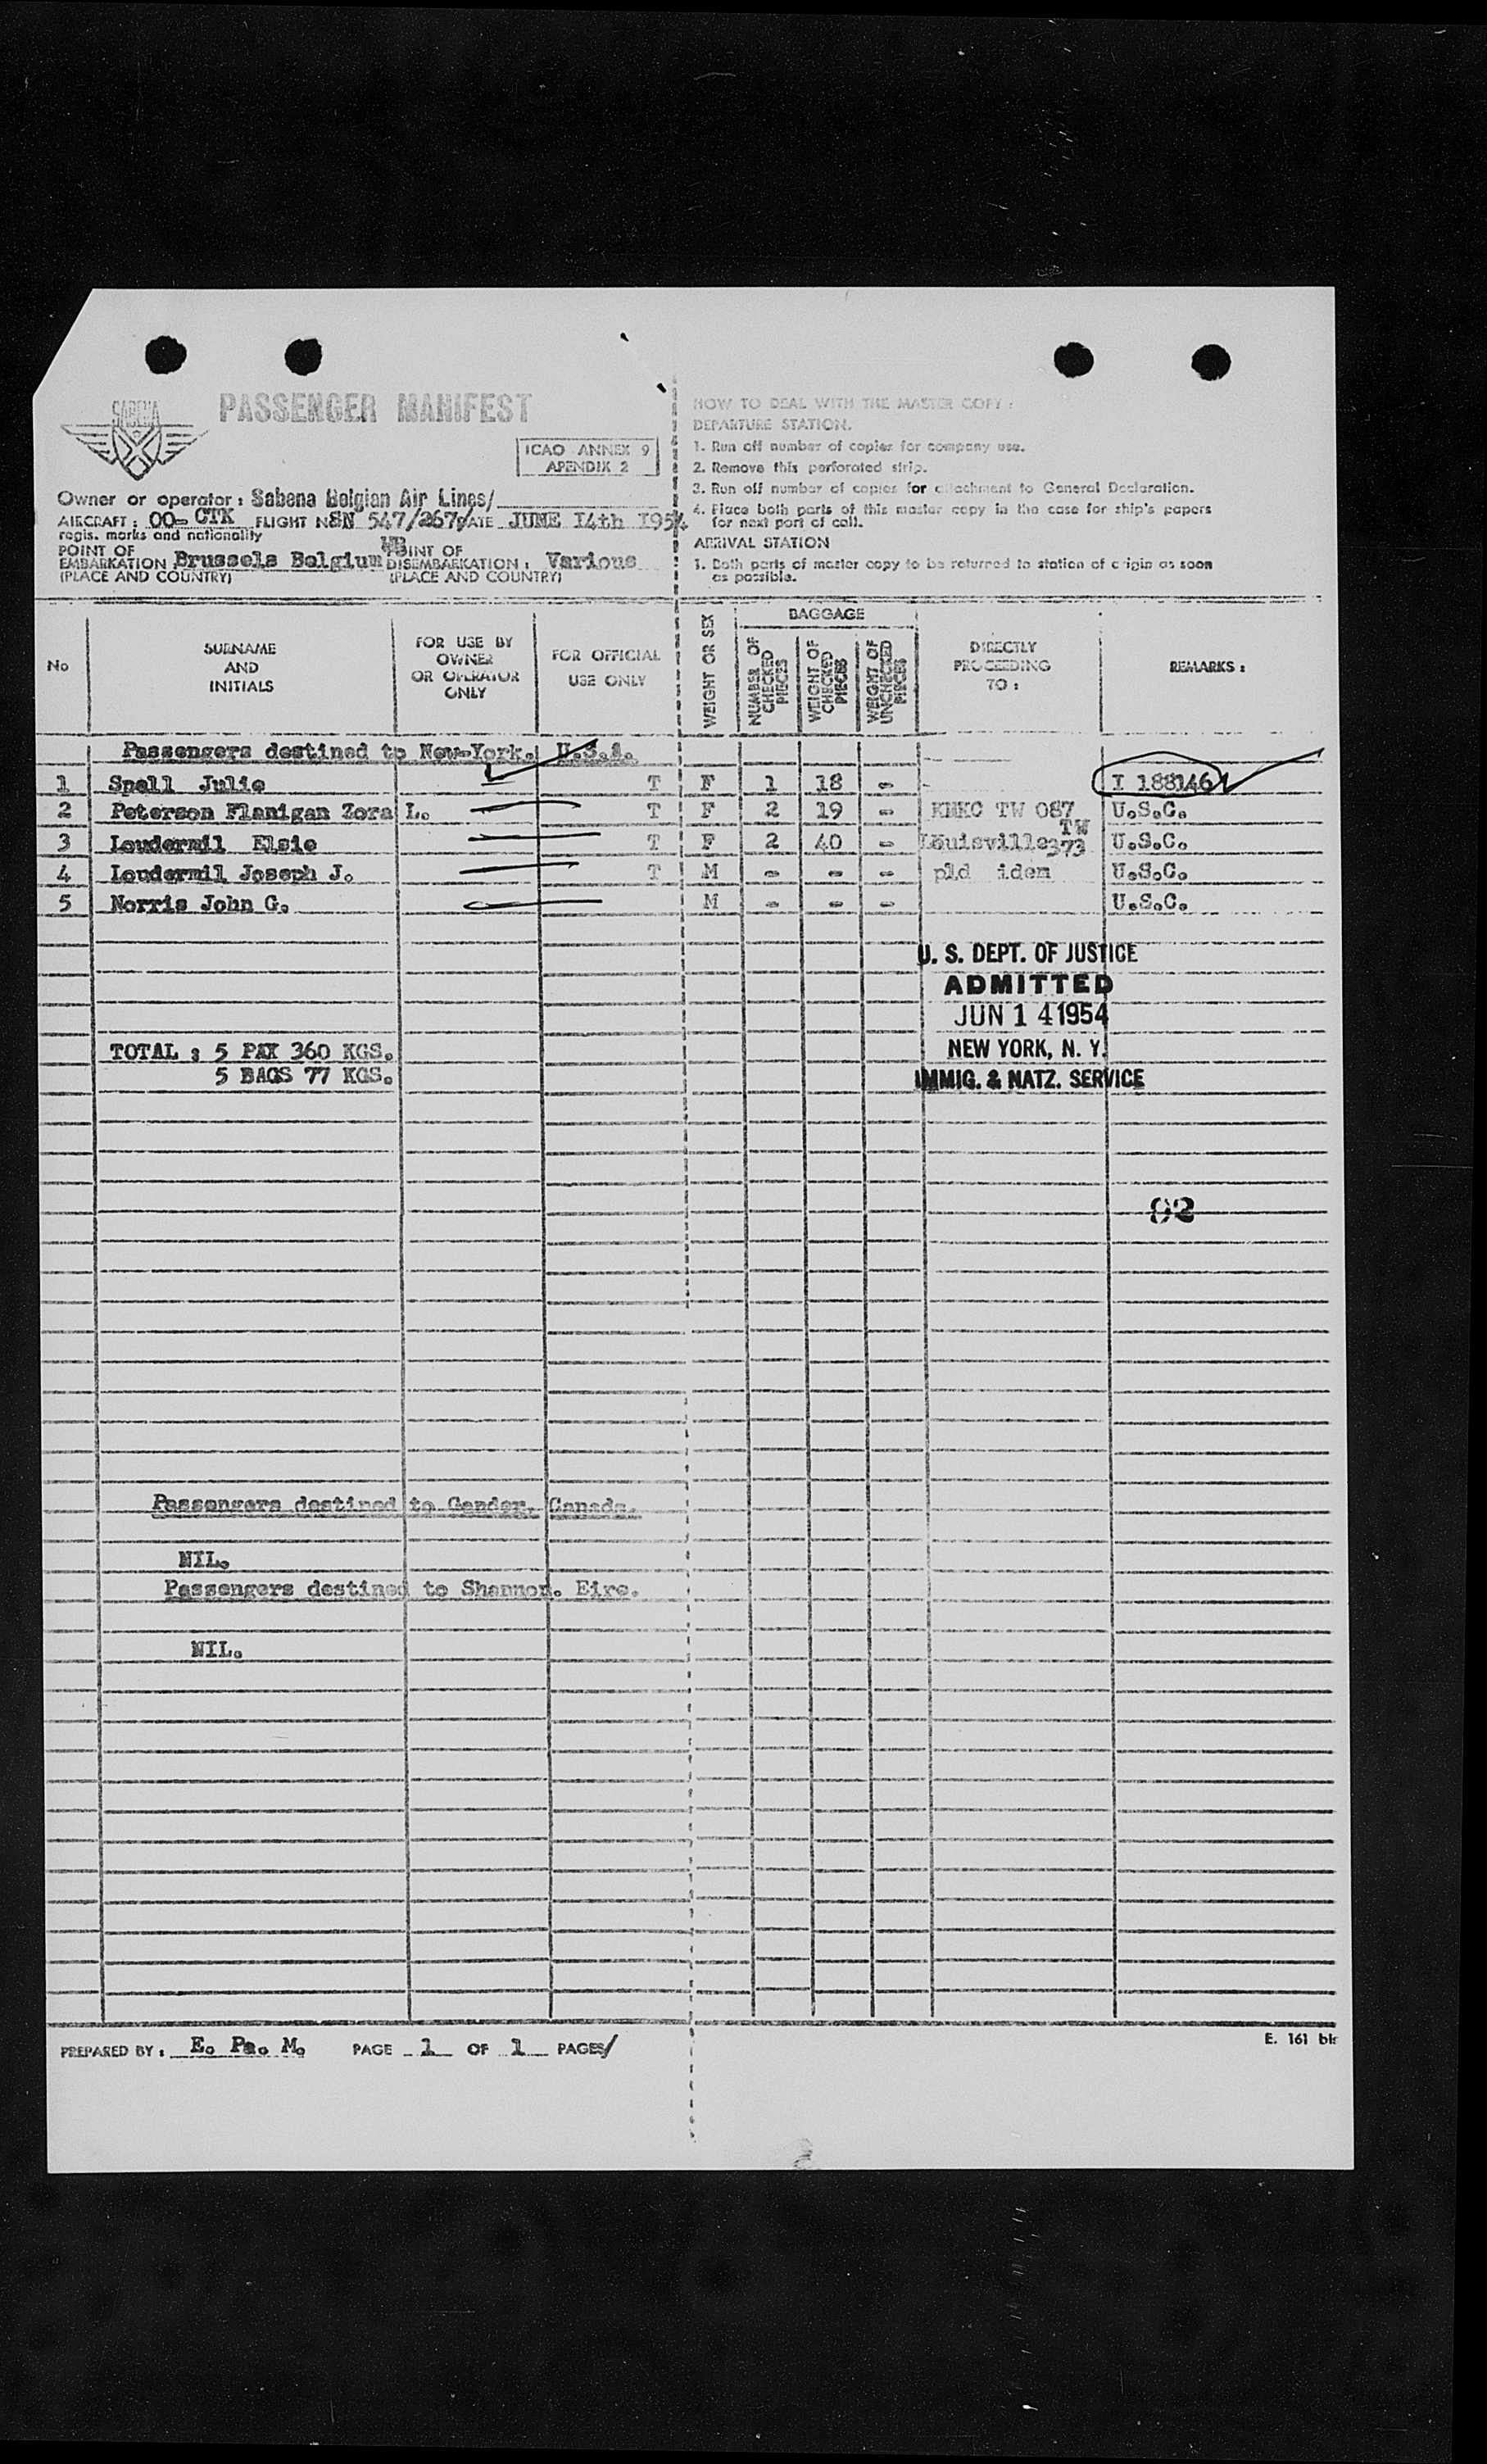 SABENA
PASSENGER MANIFEST
ICAO ANNEX 9
APENDIX 2
Owner or operator : Sabena Belgian Air Lines/
AIRCRAFT : OO- CTK FLIGHT N SN 547/267 DATE JUNE 14th 1954
regis. marks and nationality
POINT OF EMBARKATION Brussels Belgium POINT OF DISEMBARKATION : Various
(PLACE AND COUNTRY) (PLACE AND COUNTRY)
HOW TO DEAL WITH THE MASTER COPY :
DEPARTURE STATION.
1. Run off number of copies for company use.
2. Remove this perforated strip.
3. Run off number of copies for attachment to General Declaration.
4. Place both parts of this master copy in the case for ship's papers
for next port of call.
ARRIVAL STATION
1. Both parts of master copy to be returned to station of origin as soon
as possible.
No
SURNAME
AND
INITIALS
FOR USE BY
OWNER
OR OPERATOR
ONLY
FOR OFFICIAL
USE ONLY
WEIGHT OR SEX
BAGGAGE
NUMBER OF
CHECKED
PIECES
WEIGHT OF
CHECKED
PIECES
WEIGHT OF
UNCHECKED
PIECES
DIRECTLY
PROCEEDING
TO :
REMARKS :
Passengers destined to New-York. U.S.A.
1 Spell Julie T F 1 18 - I 188146
2 Peterson Flanigan Zora L. T F 2 19 - KMKC TW 087 U.S.C.
3 Loudermil Elsie T F 2 40 - Louisville TW 373 U.S.C.
4 Loudermil Joseph J. T M - - - pld idem U.S.C.
5 Norris John G. M - - - U.S.C.
U. S. DEPT. OF JUSTICE
ADMITTED
JUN 14 1954
NEW YORK, N. Y.
IMMIG. & NATZ. SERVICE
TOTAL : 5 PAX 360 KGS.
5 BAGS 77 KGS.
92
Passengers destined to Gander, Canada.
NIL.
Passengers destined to Shannon. Eire.
NIL.
PREPARED BY : E. Pa. M. PAGE 1 OF 1 PAGES/
E. 161 bir